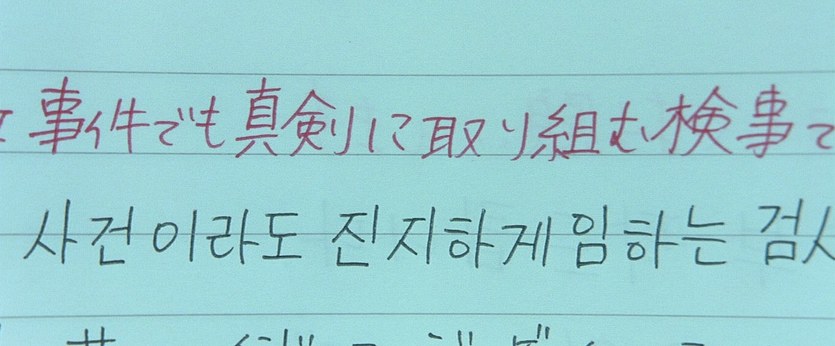 事件でも真剣に取り組む検事で
사건이라도 진지하게 임하는 검사